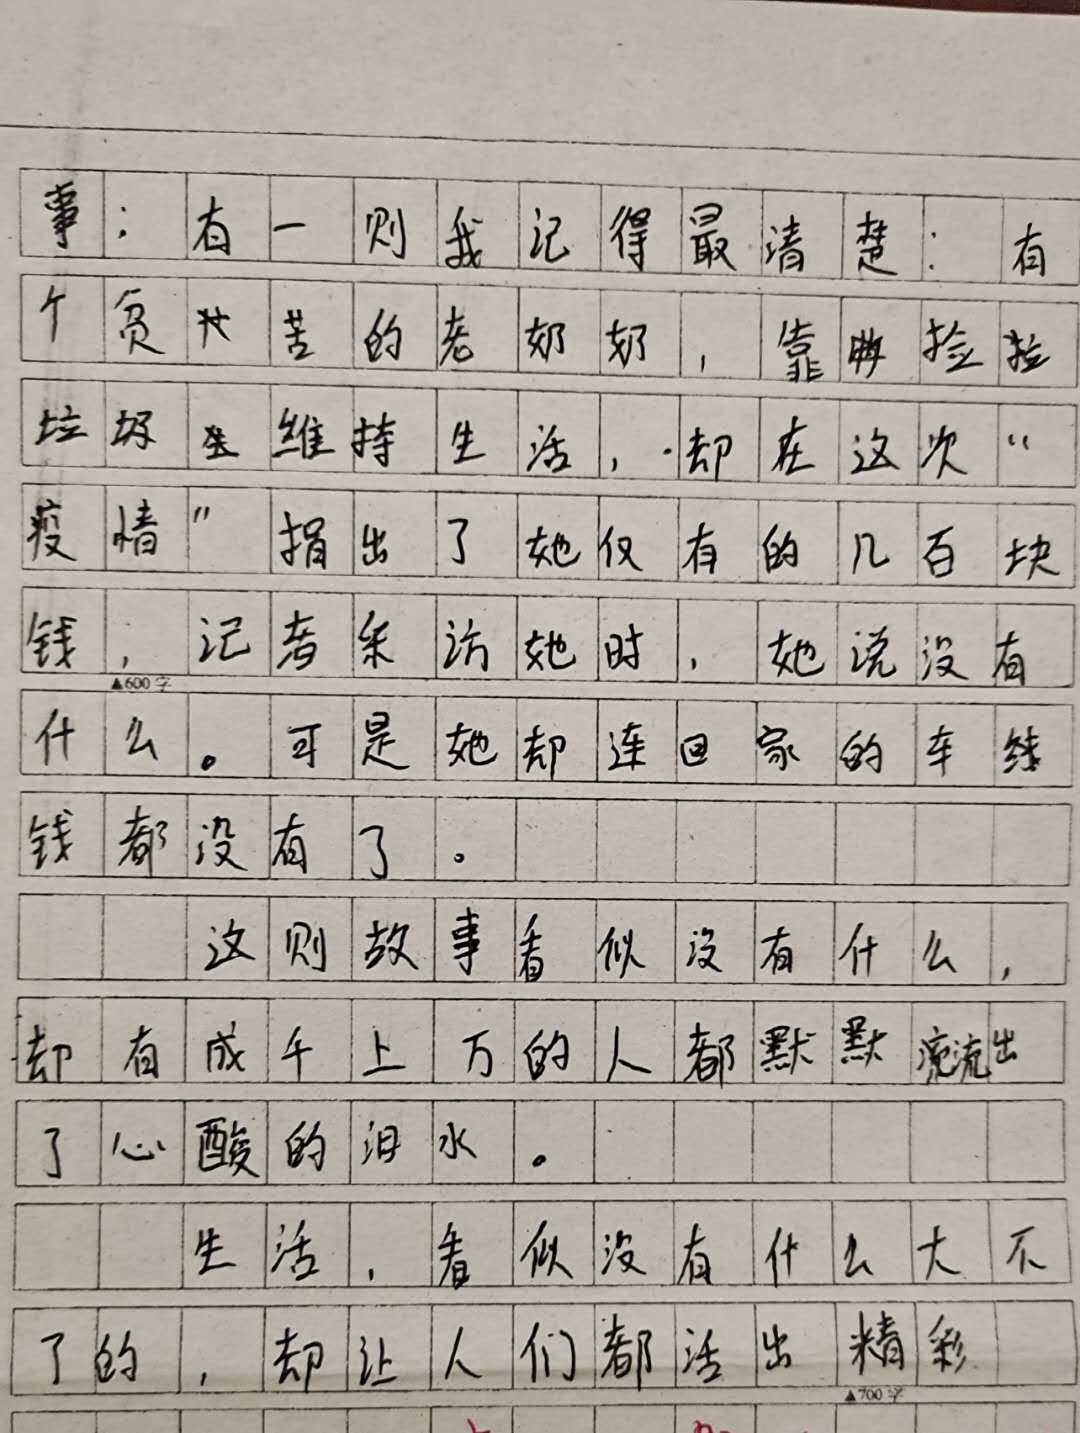 事：有一则我记得最清楚：有
个贫苦的老奶奶，靠捡垃
圾维持生活，却在这次“
疫情”捐出了她仅有的几百块
钱，记者采访她时，她说没有
▲600字
什么。可是她却连回家的车
钱都没有了。
这则故事看似没有什么，
却有成千上万的人都默默流出
了心酸的泪水。
生活，看似没有什么大不
了的，却让人们都活出精彩
▲700字